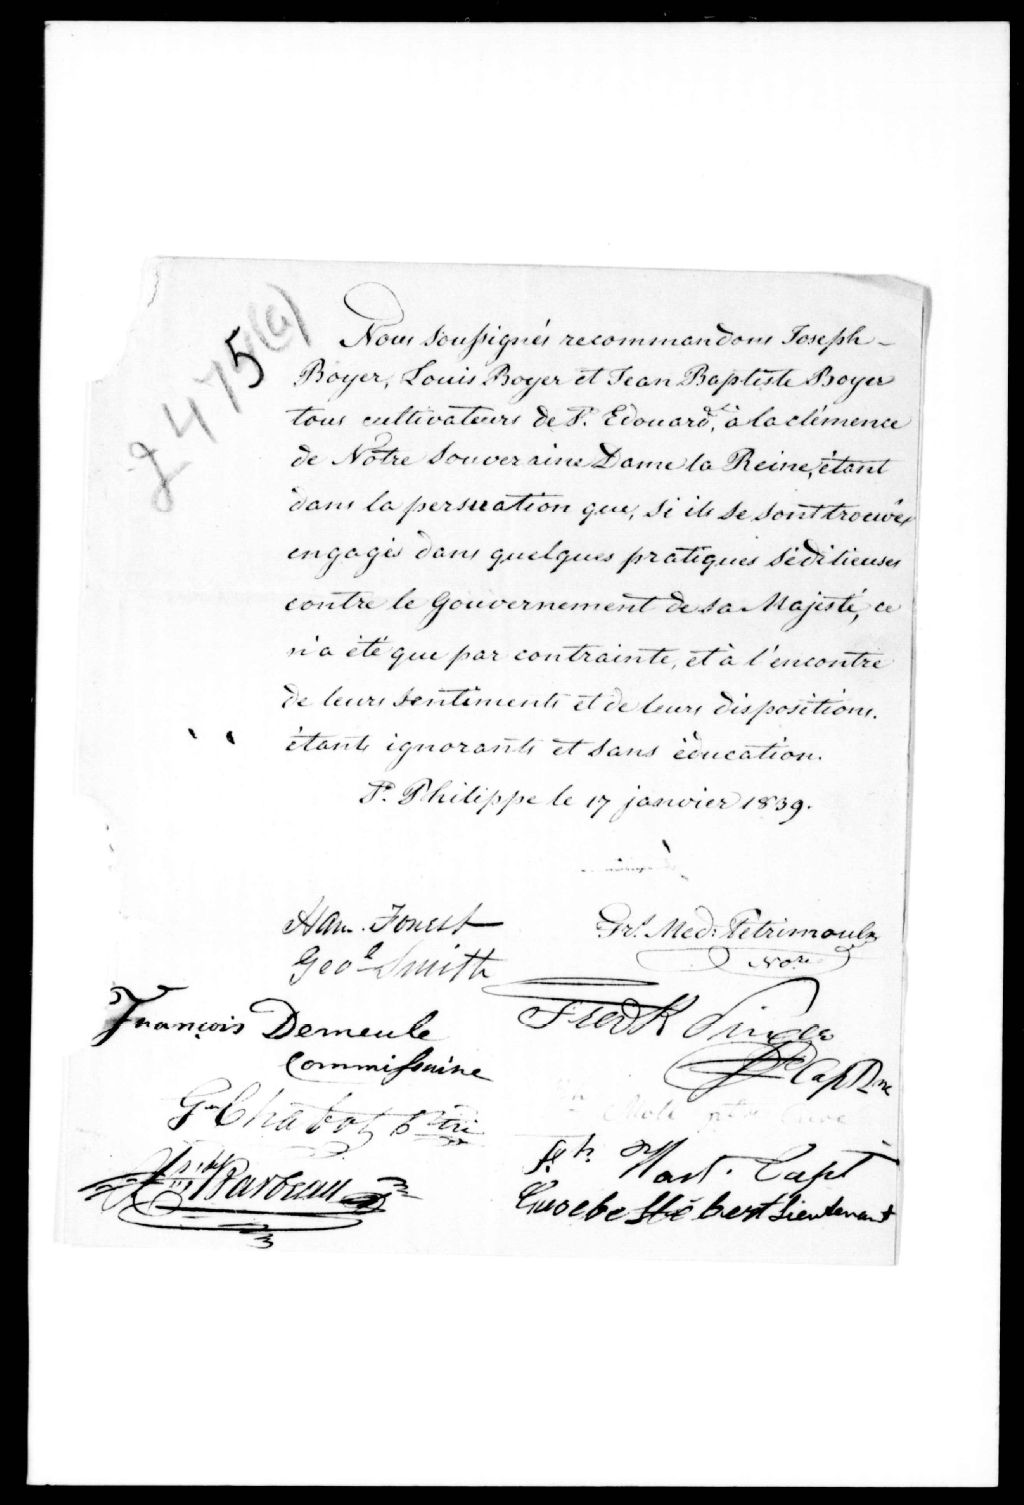 2475(a)
Nous soussignés recommandons Joseph
Boyer, Louis Boyer et Jean Baptiste Boyer
tous cultivateurs de St. Edouard, à la clémence
de Nôtre Souveraine Dame la Reine, étant
dans la persuation que, si ils se sont trouvés
engagés dans quelques pratiques séditieuses
contre le Gouvernement de Sa Majesté, ce
n'a été que par contrainte, et à l'encontre
de leurs sentiments et de leurs dispositions.
étants ignorants et sans éducation.
St. Philippe le 17 janvier 1839.
Geo Smith
Petrimoulx
Nore
François Demeule
Commissaire
Fredk Singer
Capt
Barbeau
Hart. Capt
Hébert Lieutenant